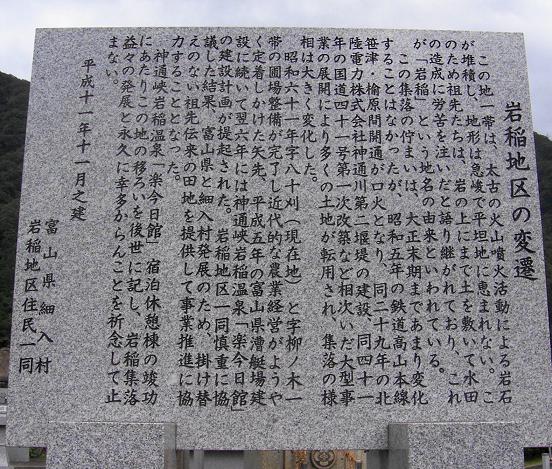 岩稲地区の変遷
この地一帯は、太古の火山噴火活動による岩石
が堆積し、地形は急峻で平坦地に恵まれない。こ
のため祖先たちは、岩の上にまで土を敷いて水田
の造成に労苦を注いだと語り継がれており、これ
が「岩稲」という地名の由来といわれている。
この集落の佇まいは、大正末期まであまり変化
することはなかったが、昭和五年の鉄道高山本線
笹津・楡原間開通が口火となり、同二十九年の北
陸電力株式会社神通川第二堰堤の建設、同四十一
年の国道四十一号第一次改築など相次いだ大型事
業の展開により多くの土地が転用され、集落の様
相は大きく変化した。
昭和六十一年字八十刈(現在地)と字柳ノ木一
帯の圃場整備が完了し近代的な農業経営がようや
く定着しかけた矢先、平成五年の富山県漕艇場建
設に続いて翌六年には神通峡岩稲温泉「楽今日館」
の建設計画が提起された。岩稲地区一同慎重に協
議した結果、富山県と細入村発展のため、掛け替
えのない祖先伝来の田地を提供して事業推進に協
力することとなった。
神通峡岩稲温泉「楽今日館」宿泊休憩棟の竣功
にあたりこの地の移ろいを後世に記し、岩稲集落
益々の発展と永久に幸多からんことを祈念して止
まない。
平成十一年十一月之建
富山県細入村
岩稲地区住民一同